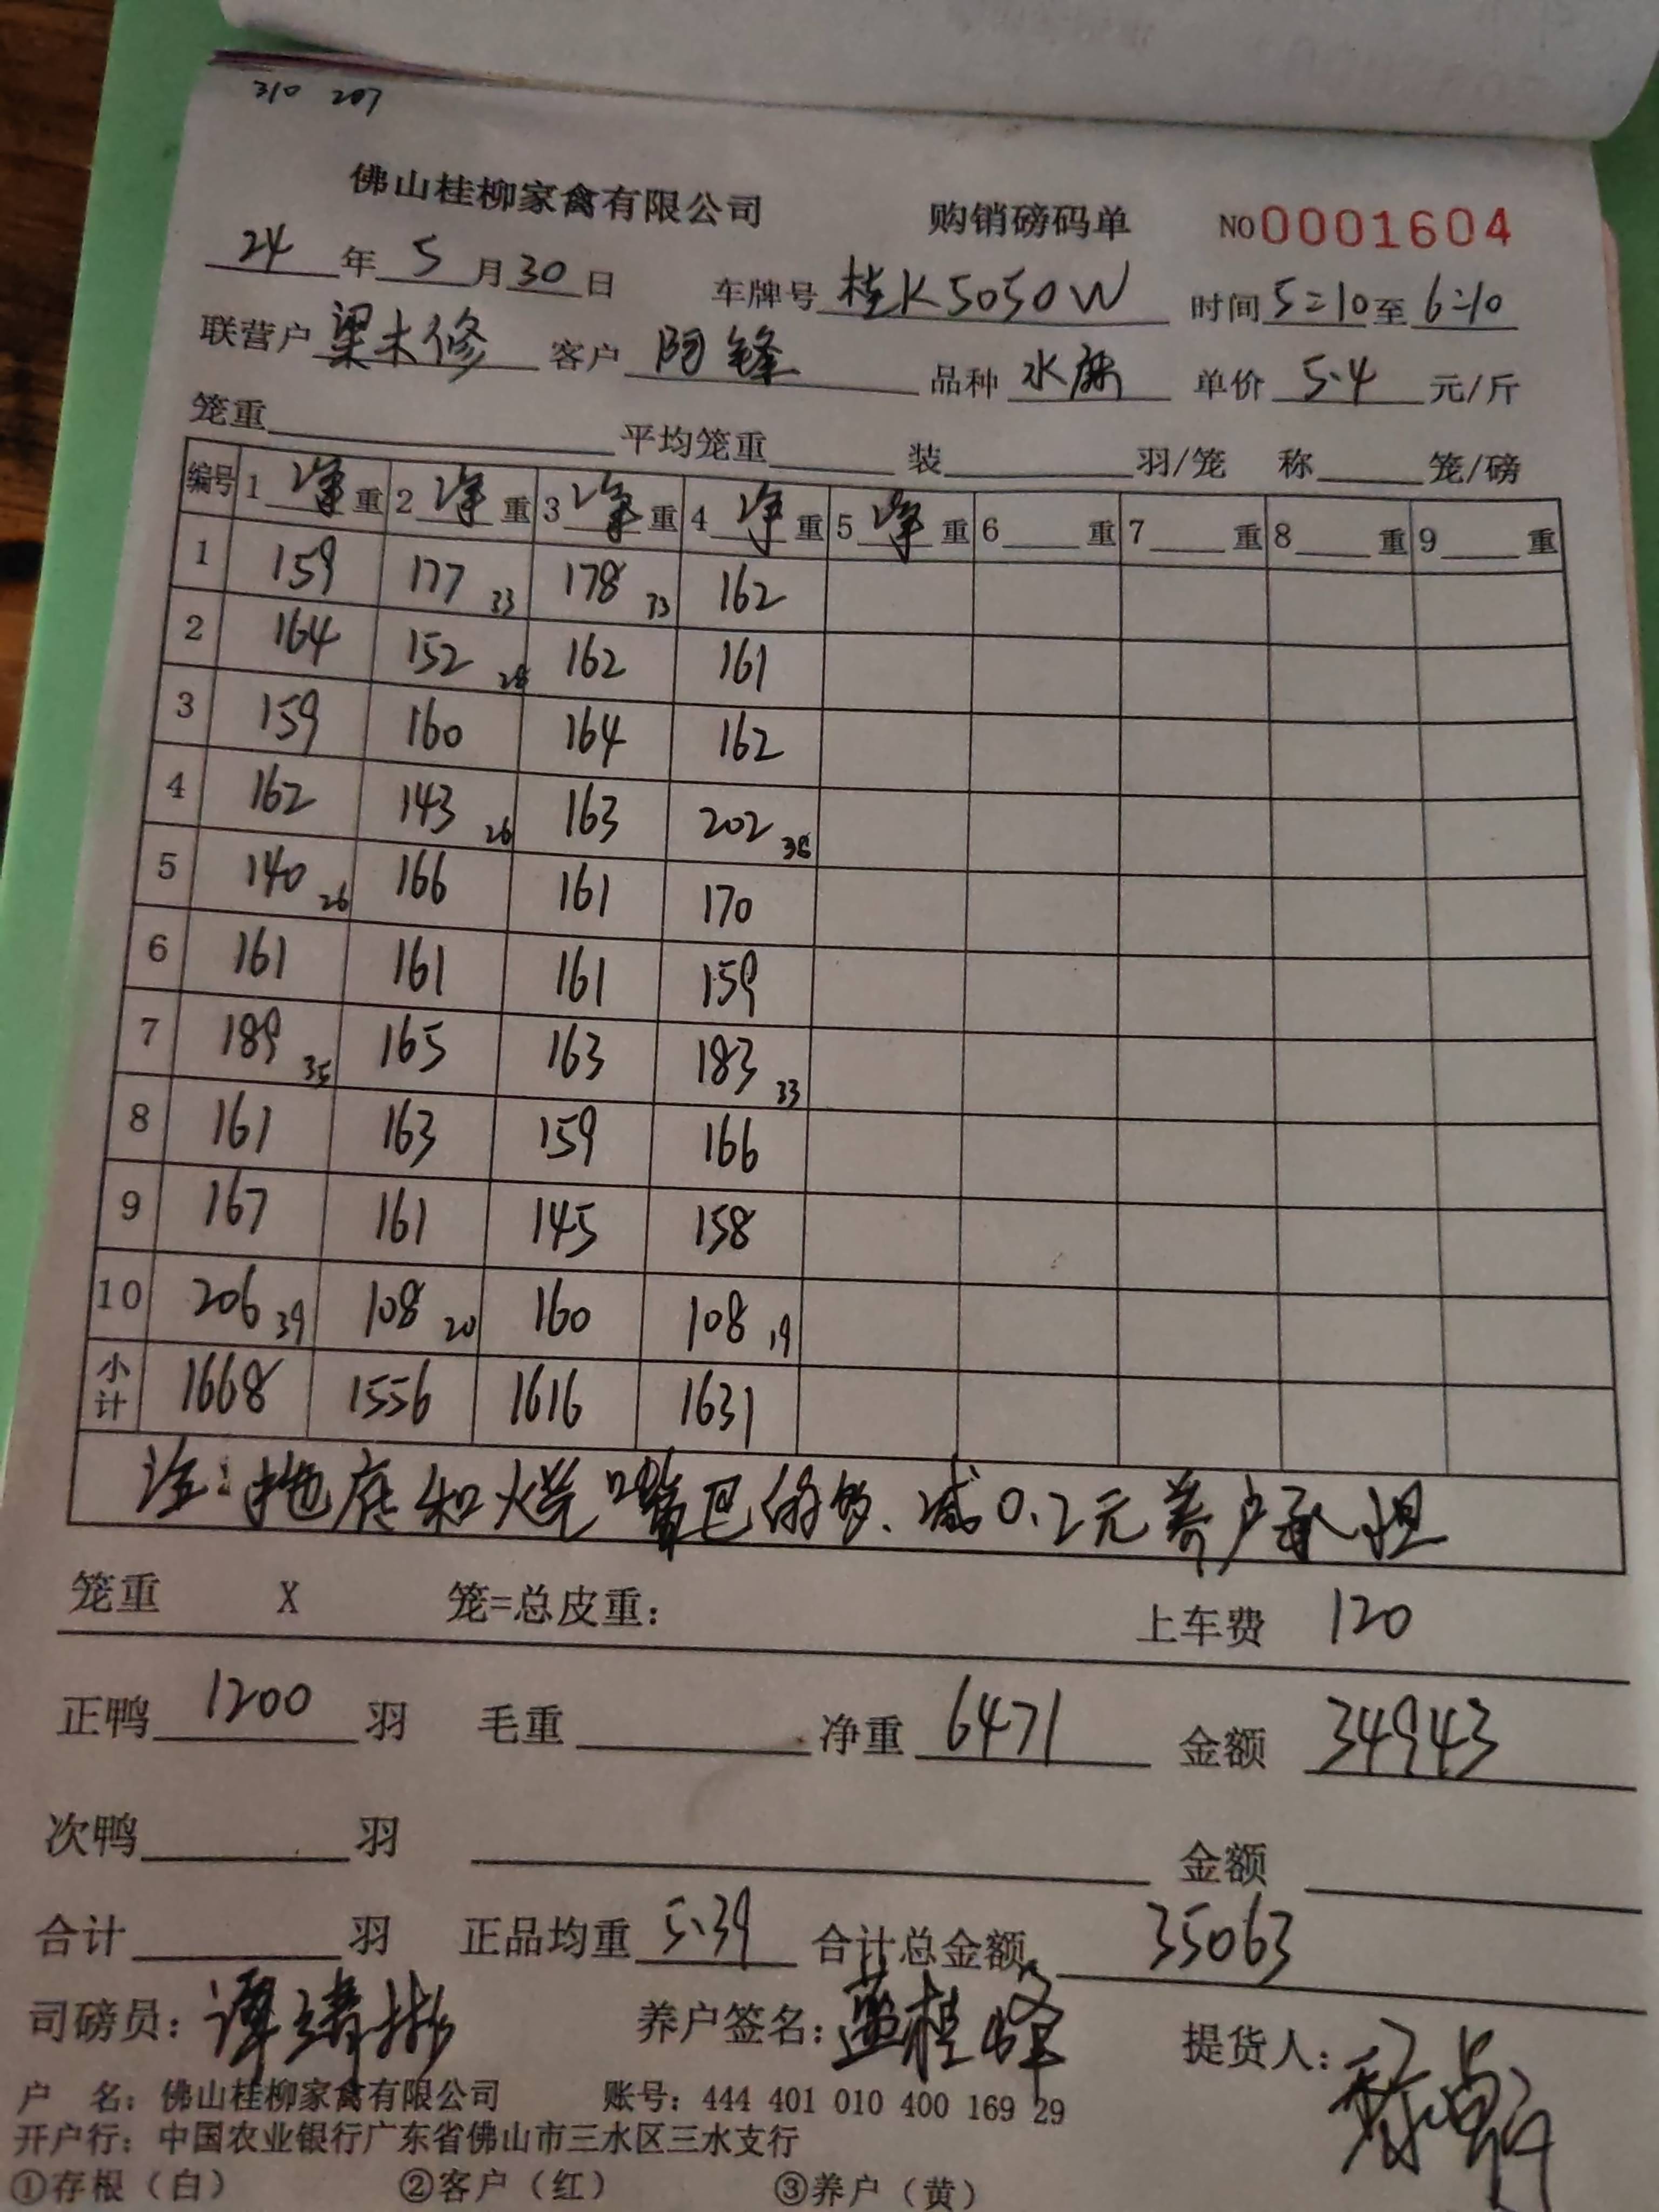 310 207
佛山桂柳家禽有限公司 购销磅码单 NO 0001604
24 年 5 月 30 日 车牌号 桂K5050W 时间 5:10 至 6:10
联营户 梁木修 客户 阿锋 品种 水麻 单价 5.4 元/斤
笼重 平均笼重 装 羽/笼 称 笼/磅
编号 1 净 重 2 净 重 3 净 重 4 净 重 5 净 重 6 重 7 重 8 重 9 重
1 159 177 33 178 33 162
2 164 152 28 162 161
3 159 160 164 162
4 162 143 26 163 202 38
5 140 26 166 161 170
6 161 161 161 159
7 189 35 165 163 183 33
8 161 163 159 166
9 167 161 145 158
10 206 39 108 20 160 108 19
小计 1668 1556 1616 1631
注:拖底和火烧嘴巴的多、减0.2元养户承担
笼重 X 笼=总皮重: 上车费 120
正鸭 1200 羽 毛重 净重 6471 金额 34943
次鸭 羽 金额
合计 羽 正品均重 5.39 合计总金额 35063
司磅员: 养户签名: 提货人:
户 名: 佛山桂柳家禽有限公司 账号: 444 401 010 400 169 29
开户行: 中国农业银行广东省佛山市三水区三水支行
①存根（白） ②客户（红） ③养户（黄）